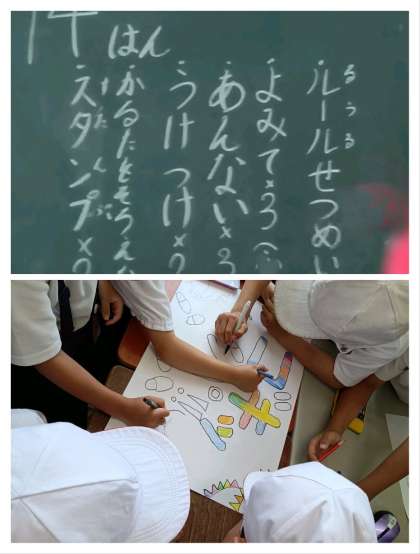 はん
・ルールせつめい
るうる
・よみて×3
・あんない×3
・うけつけ×2
・かるたをそろえ
・スタンプ×2
すたんぷ